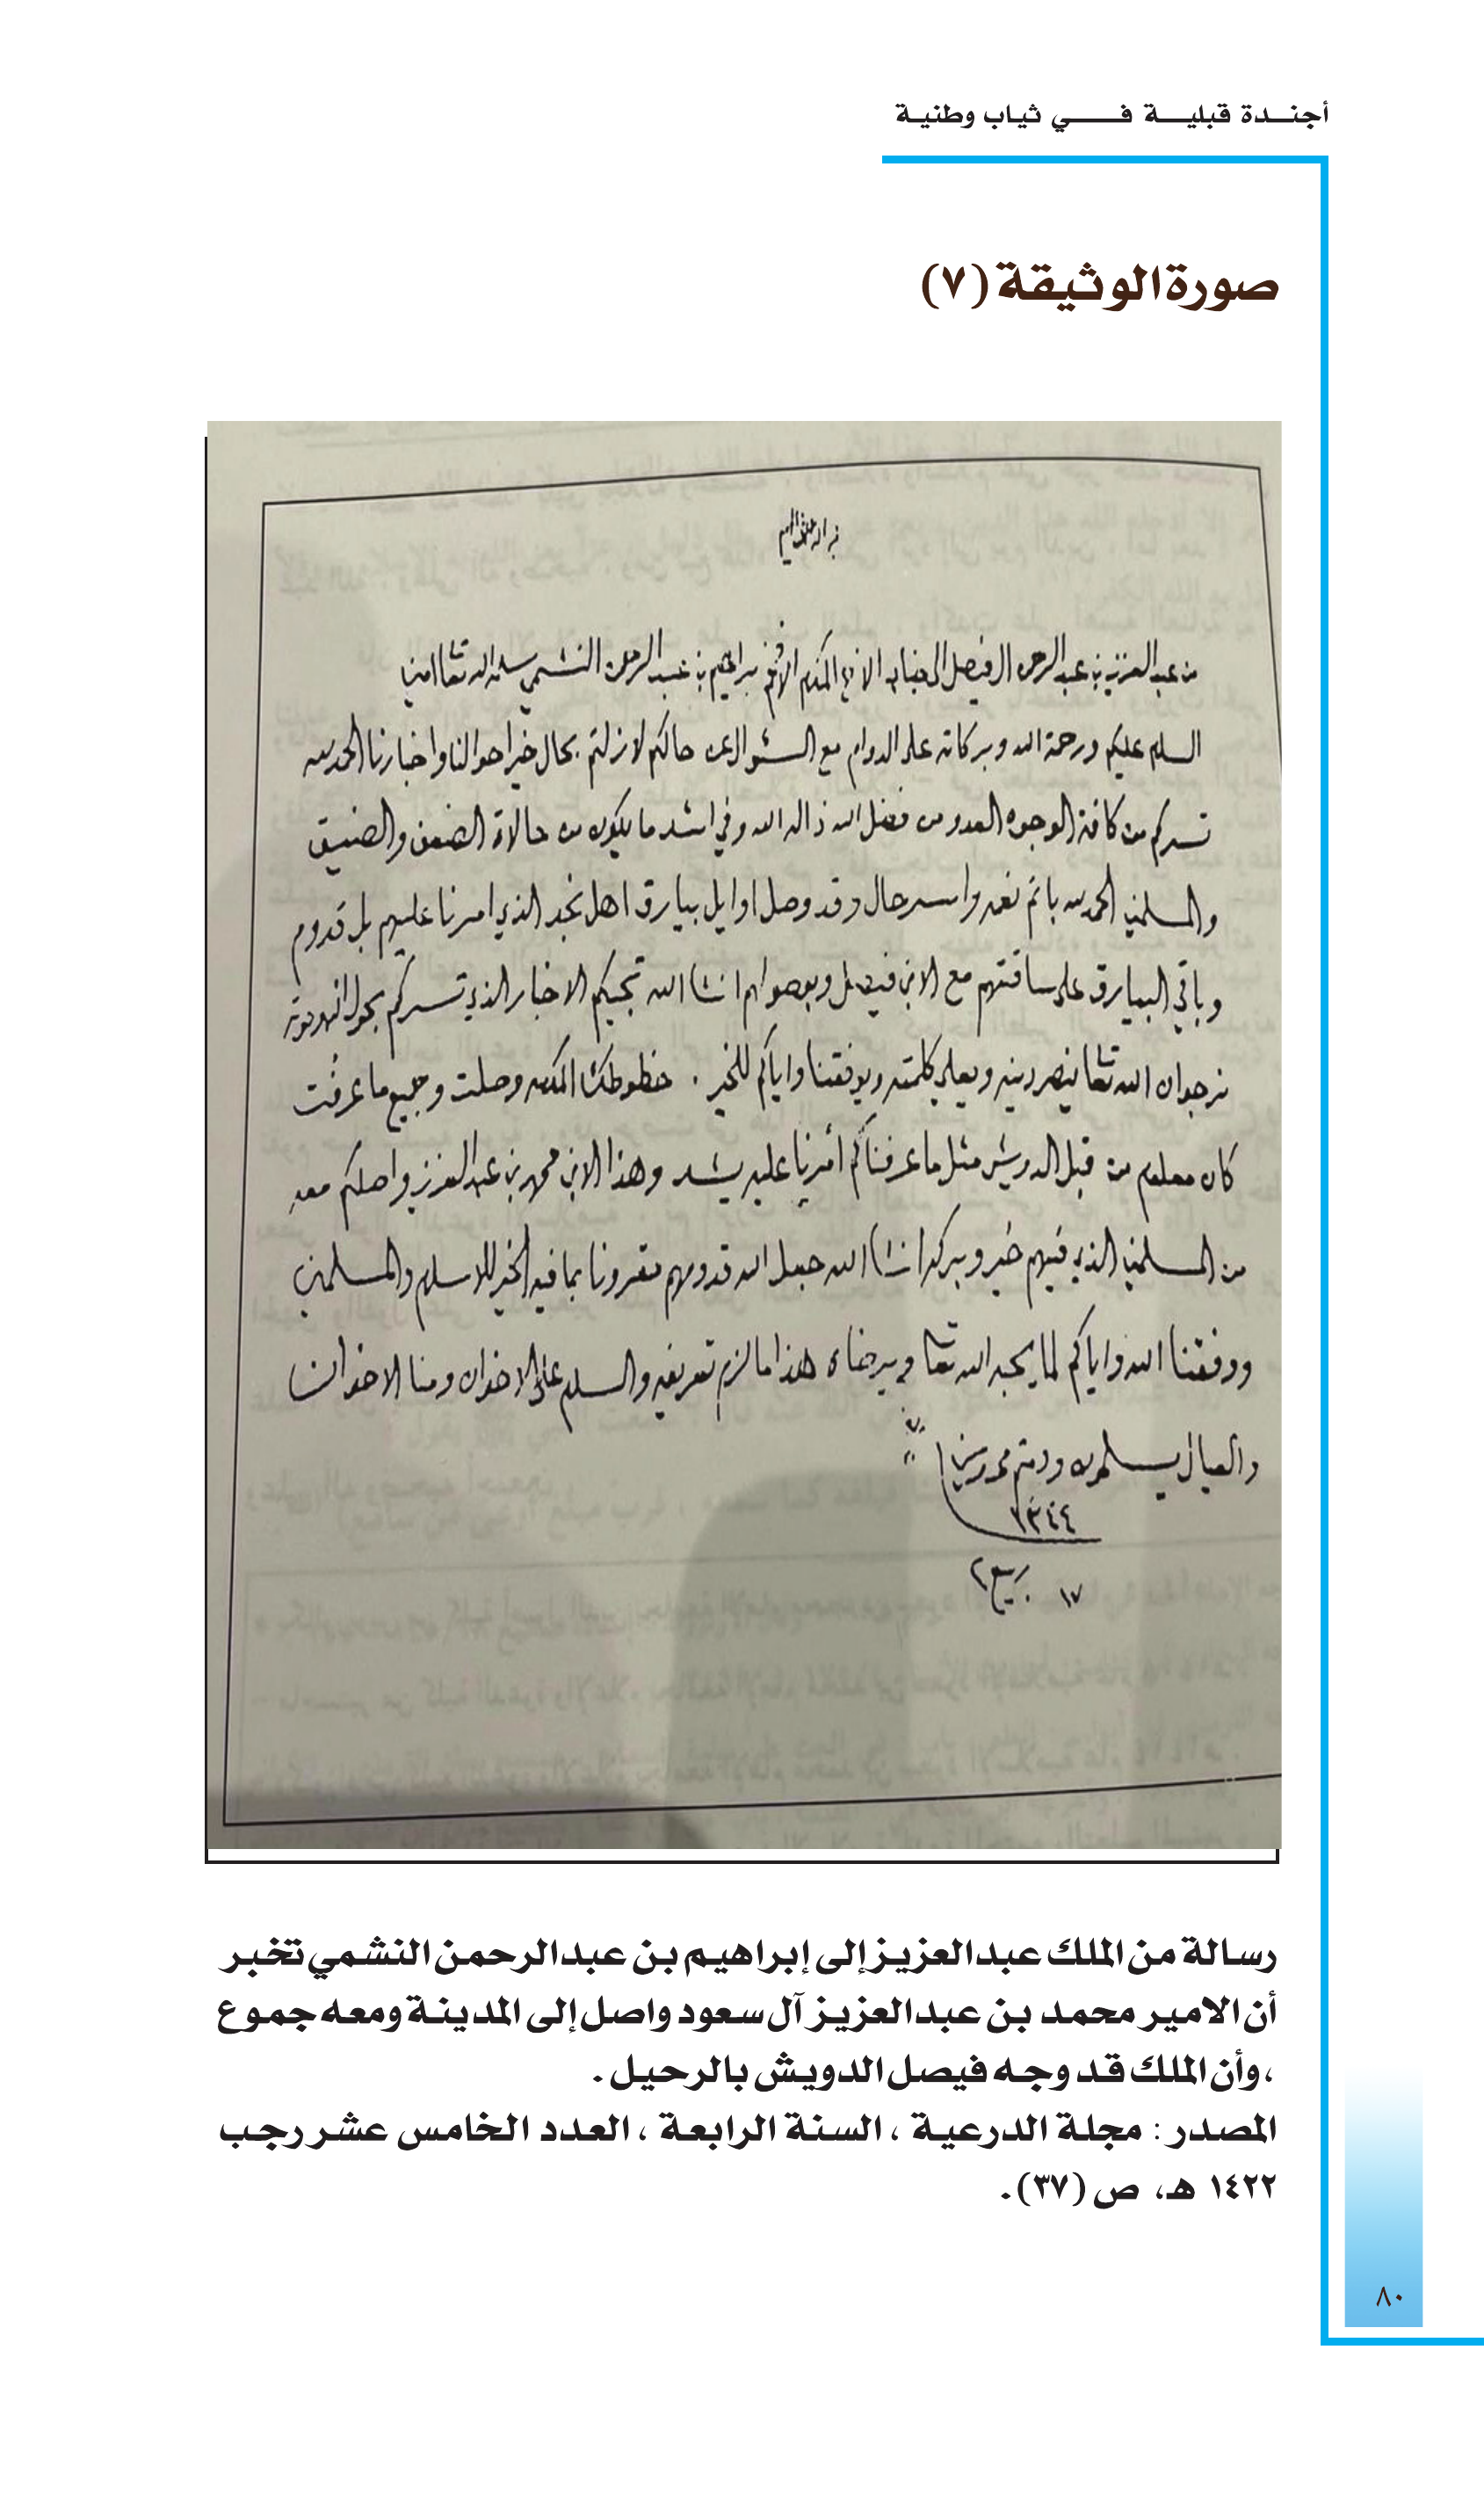 أجندة قبلية في ثياب وطنية
صورة الوثيقة (٧)
من عبد العزيز بن عبد الرحمن ال فيصل الى جناب الاخ المكرم الافخم براهيم بن عبد الرحمن النشمي سلمه الله تعا امين
السلام عليكم ورحمة الله وبركاته على الدوام مع السئوال عن حالكم لازلتم بحال خير احوالنا واخبارنا الحمد لله
تسركم من كافة الوجوه العدو من فضل الله ذاله الله وفي اشد ما يكون من حالاة الضعف والضيق
والمسلمين الحمد لله باتم نعمه واسر حال وقد وصل اوايل بيارق اهل نجد الذي امرنا عليهم بل قدوم
وباقي البيارق على ساقتهم مع الابن فيصل وبوصولهم انشا الله تجيكم الاخبار الذي تسركم بحول الله وقوته
نرجوا ان الله تعا ينصر دينه ويعلي كلمته ويوفقنا واياكم للخير . خطوطك المكرمه وصلت وجميع ما عرفت
كان معلوم من قبل الدويش مثل ما عرفناكم أمرنا عليه يشد وهذا الابن محمد بن عبد العزيز واصلكم معه
من المسلمين الذي فيهم خير وبركه انشا الله جعل الله قدومهم مقرونا بما فيه الخير للاسلام والمسلمين
ووفقنا الله واياكم لما يحبه الله تعا ويرضاه هذا ما لزم تعريفه والسلام على الاخوان ومنا الاخوان
والعيال يسلمون ودمتم محروسين
١٣٤٤
١٧ ربيع ٢
رسالة من الملك عبدالعزيز إلى إبراهيم بن عبدالرحمن النشمي تخبر
أن الامير محمد بن عبدالعزيز آل سعود واصل إلى المدينة ومعه جموع
، وأن الملك قد وجه فيصل الدويش بالرحيل .
المصدر : مجلة الدرعية ، السنة الرابعة ، العدد الخامس عشر رجب
١٤٢٢ هـ، ص (٣٧) .
٨٠